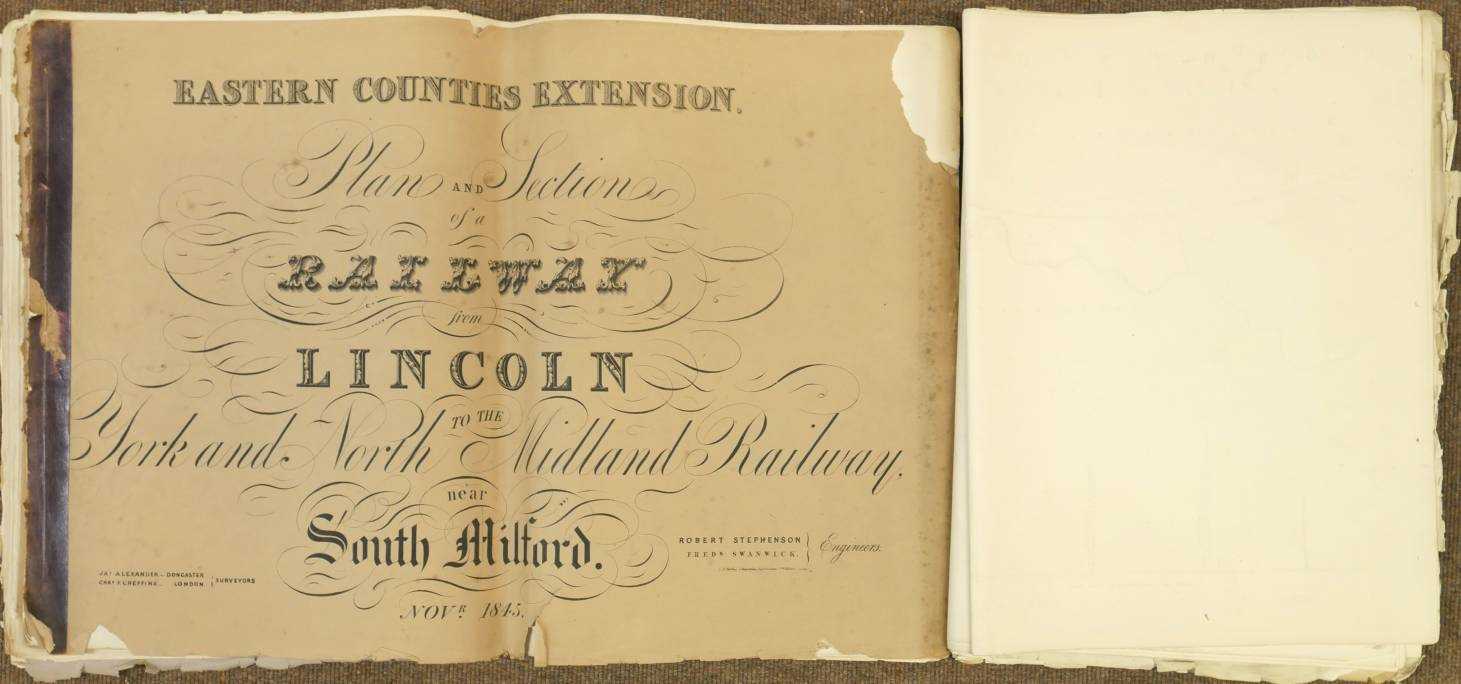 EASTERN COUNTIES EXTENSION.
Plan AND Section
of a
RAILWAY
from
LINCOLN
TO THE
York and North Midland Railway,
near
South Milford.
ROBERT STEPHENSON
FREDK SWANWICK.
Engineers.
JAS ALEXANDER - DONCASTER
CHAS F. CHEFFINS - LONDON.
SURVEYORS
NOVR. 1845.